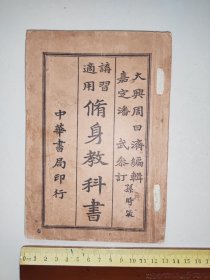 大興周日濟編輯
嘉定潘武參訂
講習適用
脩身教科書
中華書局印行